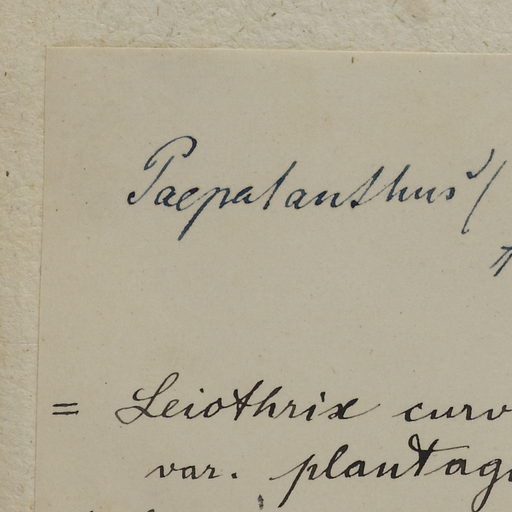 Paepalanthus (
= Leiothrix curv
var. plantag